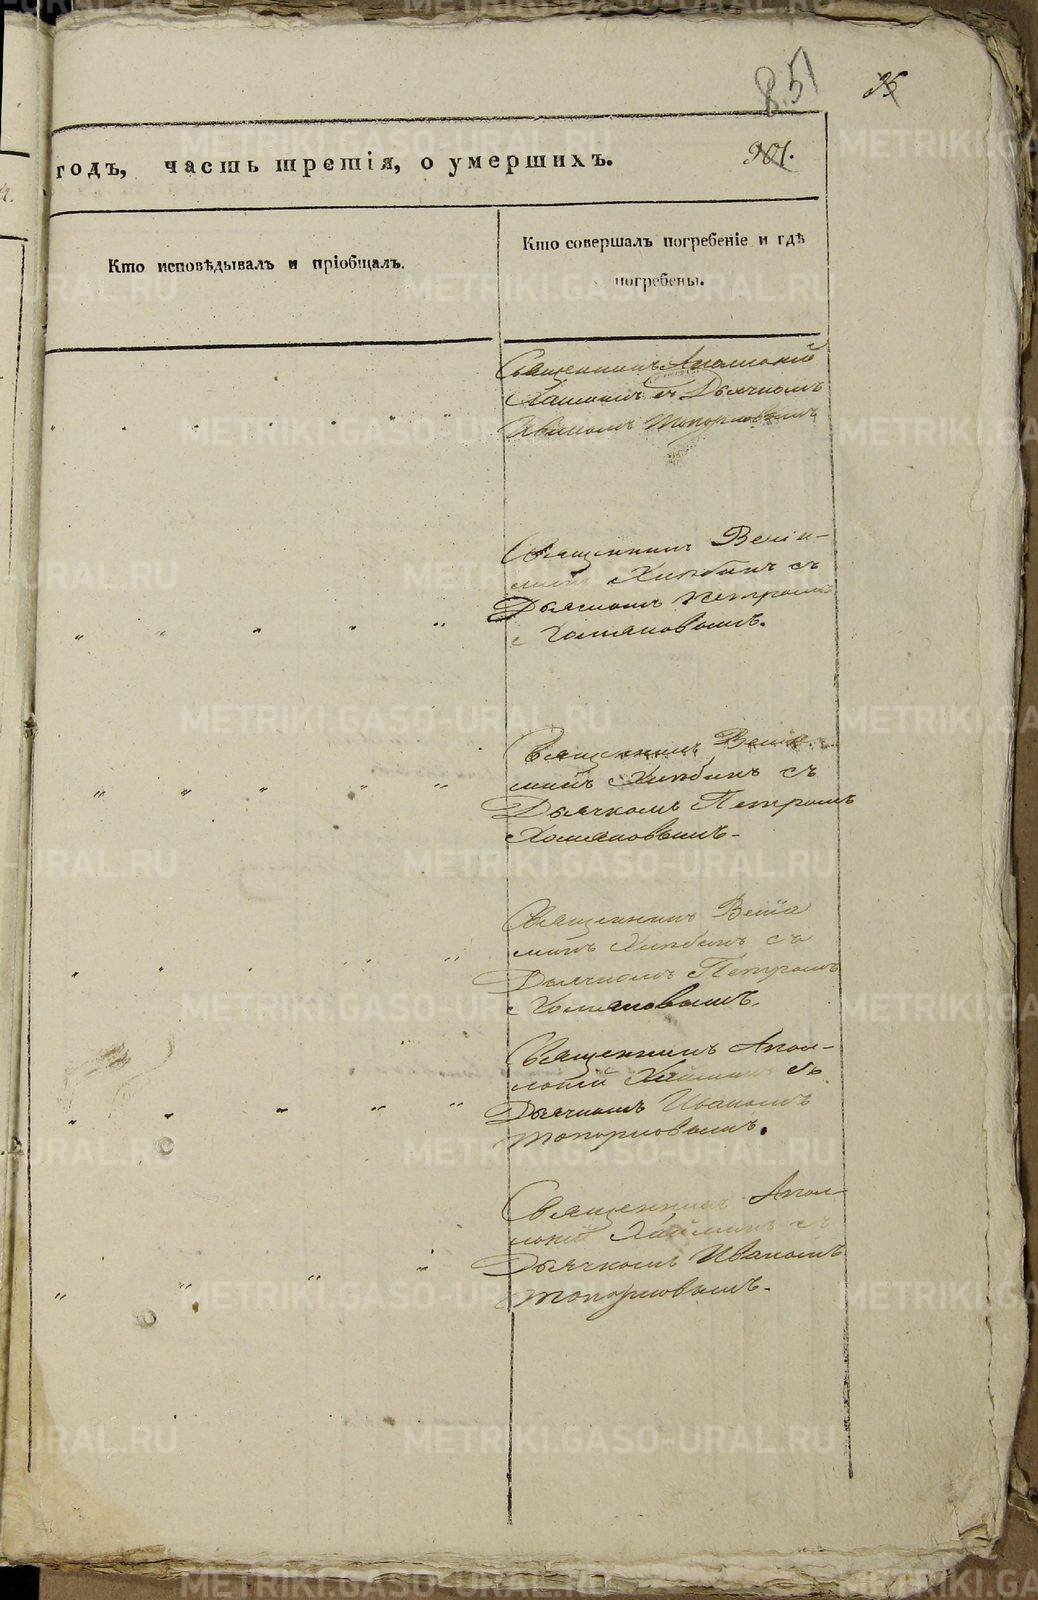 851
годъ, часть третія, о умершихъ.
901.
Кто исповѣдывалъ и пріобщалъ.
Кто совершалъ погребеніе и гдѣ
погребены.
Священникъ
съ Дьячкомъ
Иваномъ Топорковымъ
Священникъ Веніа-
минъ съ
Дьячкомъ Петромъ
Хомяковымъ.
Священникъ Веніа-
минъ съ
Дьячкомъ Петромъ
Хомяковымъ-
Священникъ Веніа
минъ съ
Дьячкомъ Петромъ
Хомяковымъ.
Священникъ Апол-
лоній съ
Дьячкомъ Иваномъ
Топорковымъ.
Священникъ Апол-
лоній съ
Дьячкомъ Иваномъ
Топорковымъ-
METRIKI.GASO-URAL.RU